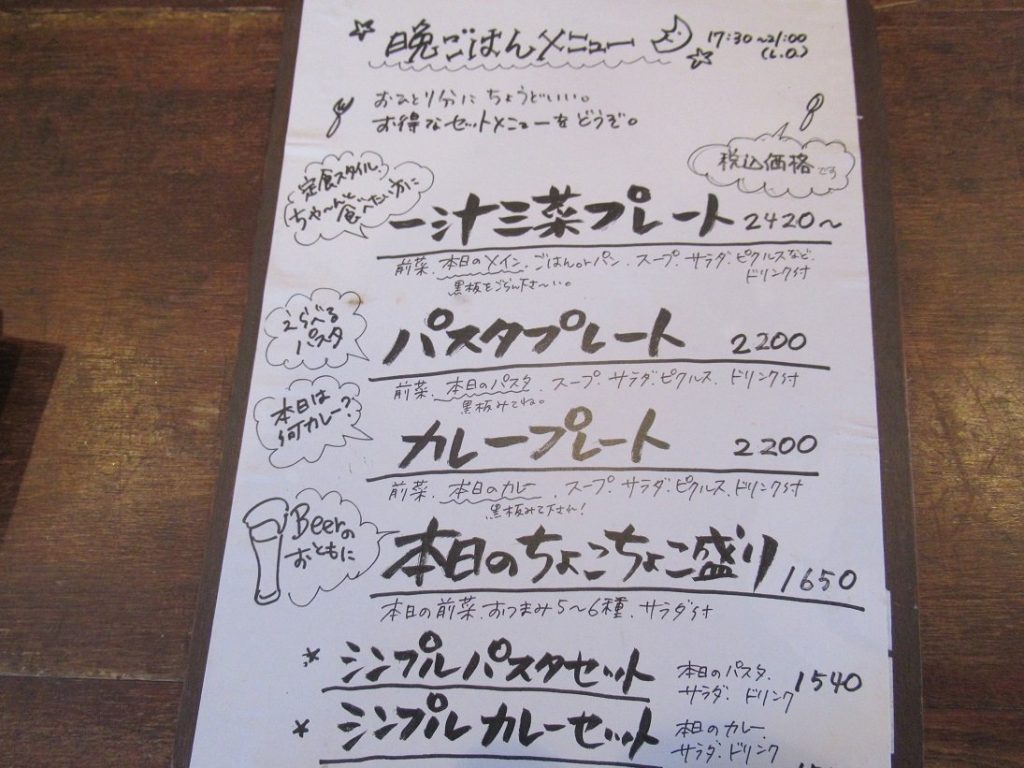 晩ごはんメニュー
17:30~21:00
(L.O.)
おひとり分にちょうどいい。
お得なセットメニューをどうぞ。
税込価格です
定食スタイル、
ちゃーんと
食べたい方に
一汁三菜プレート 2420~
前菜、本日のメイン、ごはんorパン、スープ、サラダ、ピクルスなど、
ドリンク付
黒板をごらん下さーい。
えらべる
パスタ
パスタプレート 2200
前菜、本日のパスタ、スープ、サラダ、ピクルス、ドリンク付
黒板みてね。
本日は
何カレー?
カレープレート 2200
前菜、本日のカレー、スープ、サラダ、ピクルス、ドリンク付
黒板みて下さい!
Beerの
おともに
本日のちょこちょこ盛り 1650
本日の前菜、おつまみ5~6種、サラダ付
シンプルパスタセット
本日のパスタ、
サラダ、ドリンク
1540
シンプルカレーセット
本日のカレー、
サラダ、ドリンク